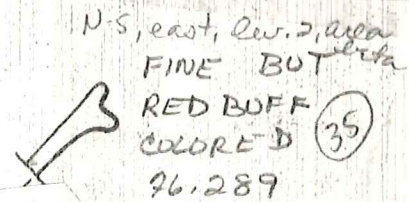 N-S, east, lev. 2, area beta
FINE BUT
RED BUFF
COLORED
35
76.289